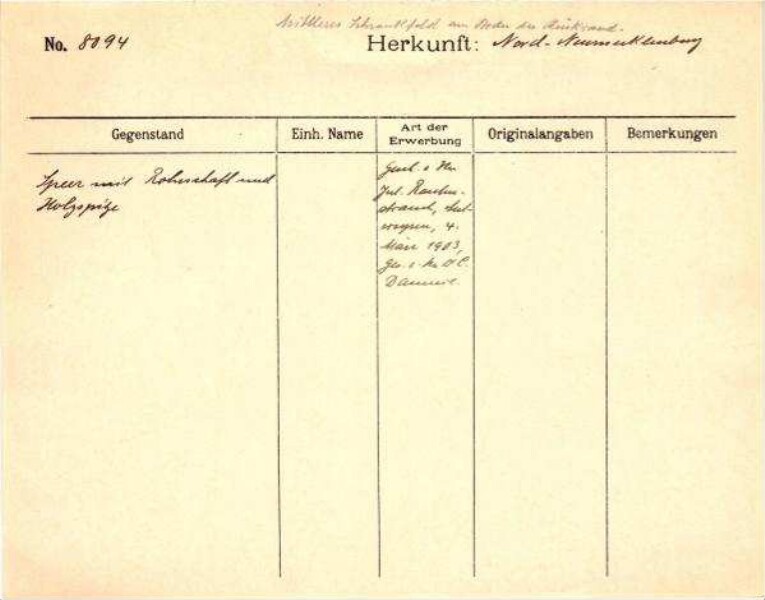 Mittleres Schrankfeld am Boden der Rückwand.
No. 8094
Herkunft: Nord-Neumecklenburg
Gegenstand
Einh. Name
Art der
Erwerbung
Originalangaben
Bemerkungen
Speer mit Rohrschaft und
Holzspitze
v. Hn
Jul.
4.
März 1903,
Ges. v. Hn O. C.